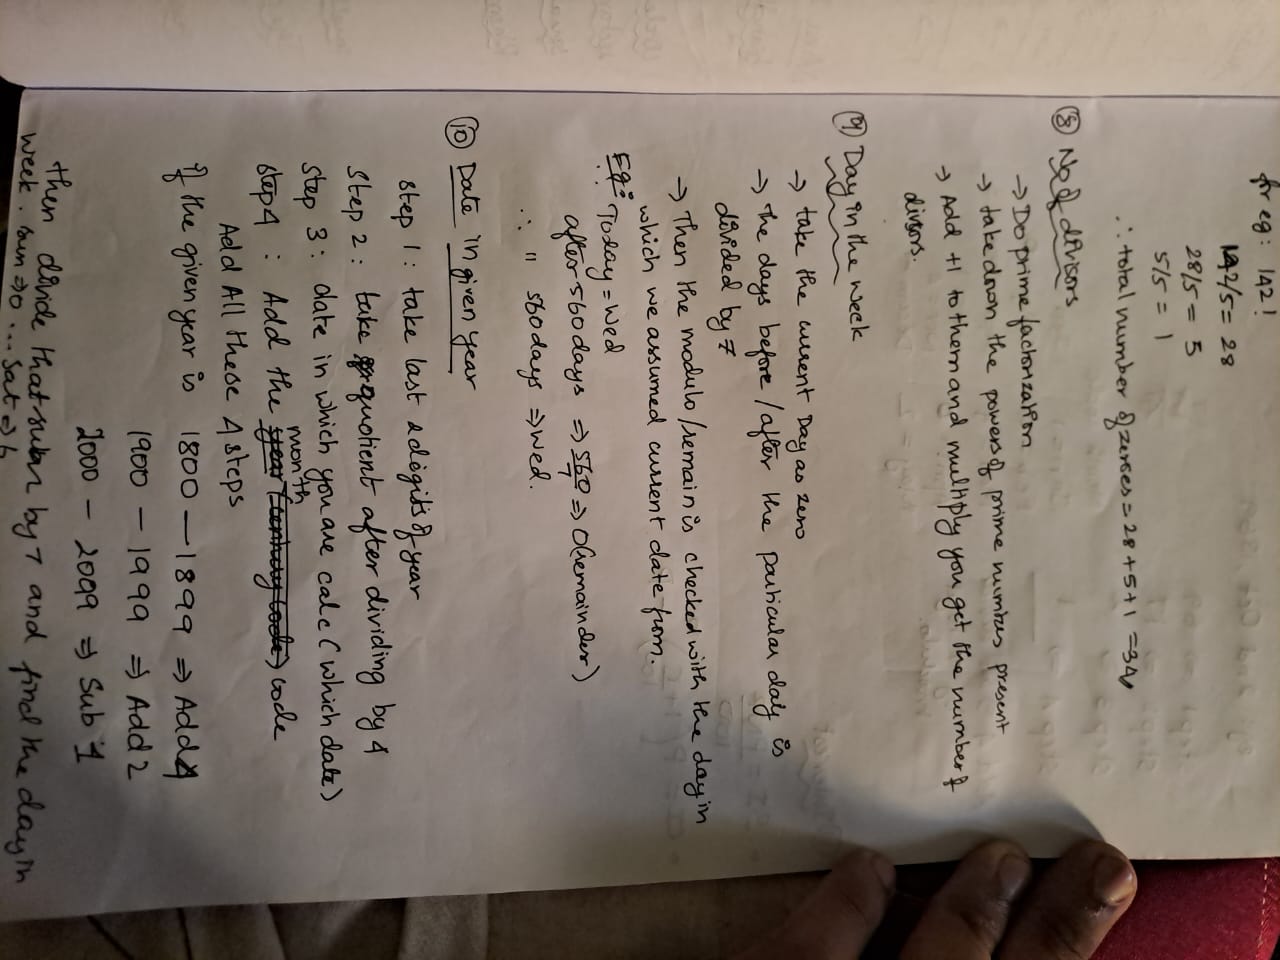 for eg: 142!
142/5 = 28
28/5 = 5
5/5 = 1
∴ total number of zeroes = 28 + 5 + 1 = 34
⑧ No of divisors
→ Do prime factorization
→ take down the powers of prime numbers present
→ Add +1 to them and multiply you get the number of
divisors.
⑨ Day in the week
→ take the current Day as zero
→ The days before / after the particular day is
divided by 7
→ Then the modulo/remain is checked with the day in
which we assumed current date from.
Eg: Today = Wed
after 560 days ⇒ 560/7 ⇒ 0 (remainder)
∴ " 560 days ⇒ Wed.
⑩ Date in given year
Step 1: take last 2 digits of year
Step 2: take quotient after dividing by 4
Step 3: date in which you are calc (which date)
Step 4: Add the month code
Add All these 4 steps
If the given year is 1800 — 1899 ⇒ Add 4
1900 — 1999 ⇒ Add 2
2000 - 2099 ⇒ Sub 1
then divide that by 7 and find the day in
week. sun ⇒ 0 ... Sat ⇒ 6